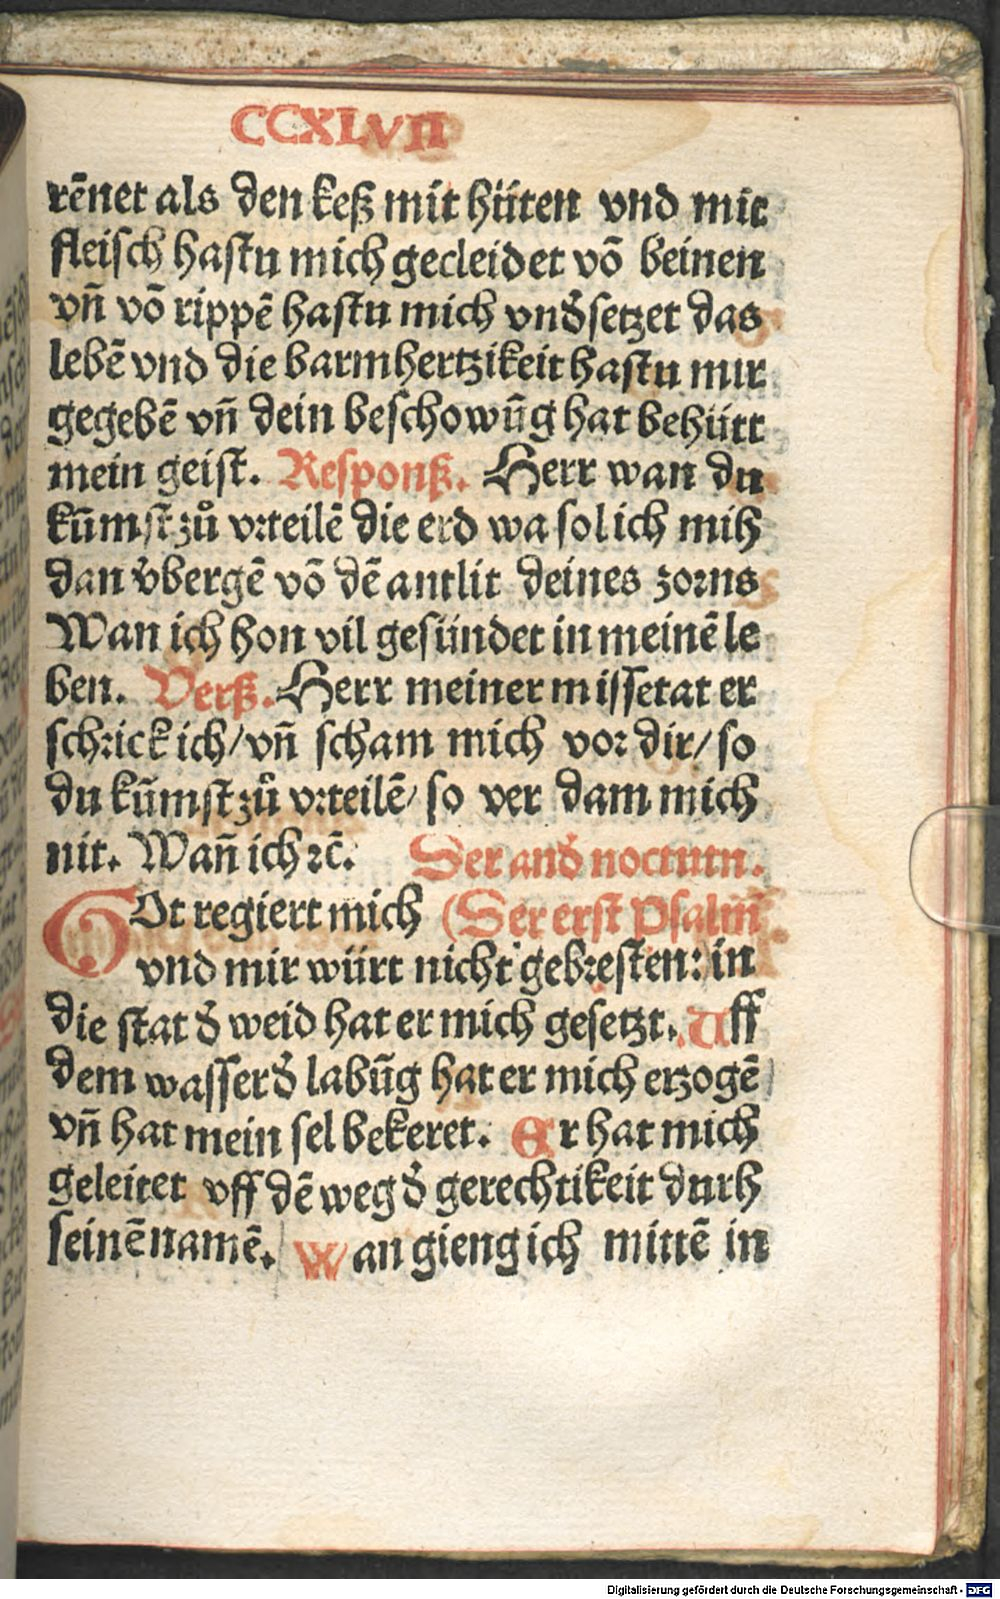 CCXLVII
rēnet als den keß mit hüten vnd mit
fleisch hastu mich gecleidet vō beinen
vñ vō rippē hastu mich vnd̕setzet das
lebē vnd die barmhertzikeit hastu mir
gegebē vñ dein beschowūg hat behütt
mein geist. Responß. Herr wan du
kūmst zů vrteilē die erd wa sol ich mih
dan v̕bergē vō dē antlit deines zorns
Wan ich hon vil gesündet in meinē le
ben. Verß. Herr meiner missetat er
schrick ich/ vñ scham mich vor dir/ so
du kūmst zů vrteilē/ so ver dam mich
nit. Wañ ich ꝛc̄. Der and̕ nocturn.
GOt regiert mich (Der erst Psalm̄
vnd mir würt nicht gebresten: in
die stat d̕ weid hat er mich gesetzt. Uff
dem wasser d̕ labūg hat er mich erzogē
vñ hat mein sel bekeret. Er hat mich
geleitet vff dē weg d̕ gerechtikeit durh
seinē namē. Wan gieng ich mittē in
Digitalisierung gefördert durch die Deutsche Forschungsgemeinschaft - DFG